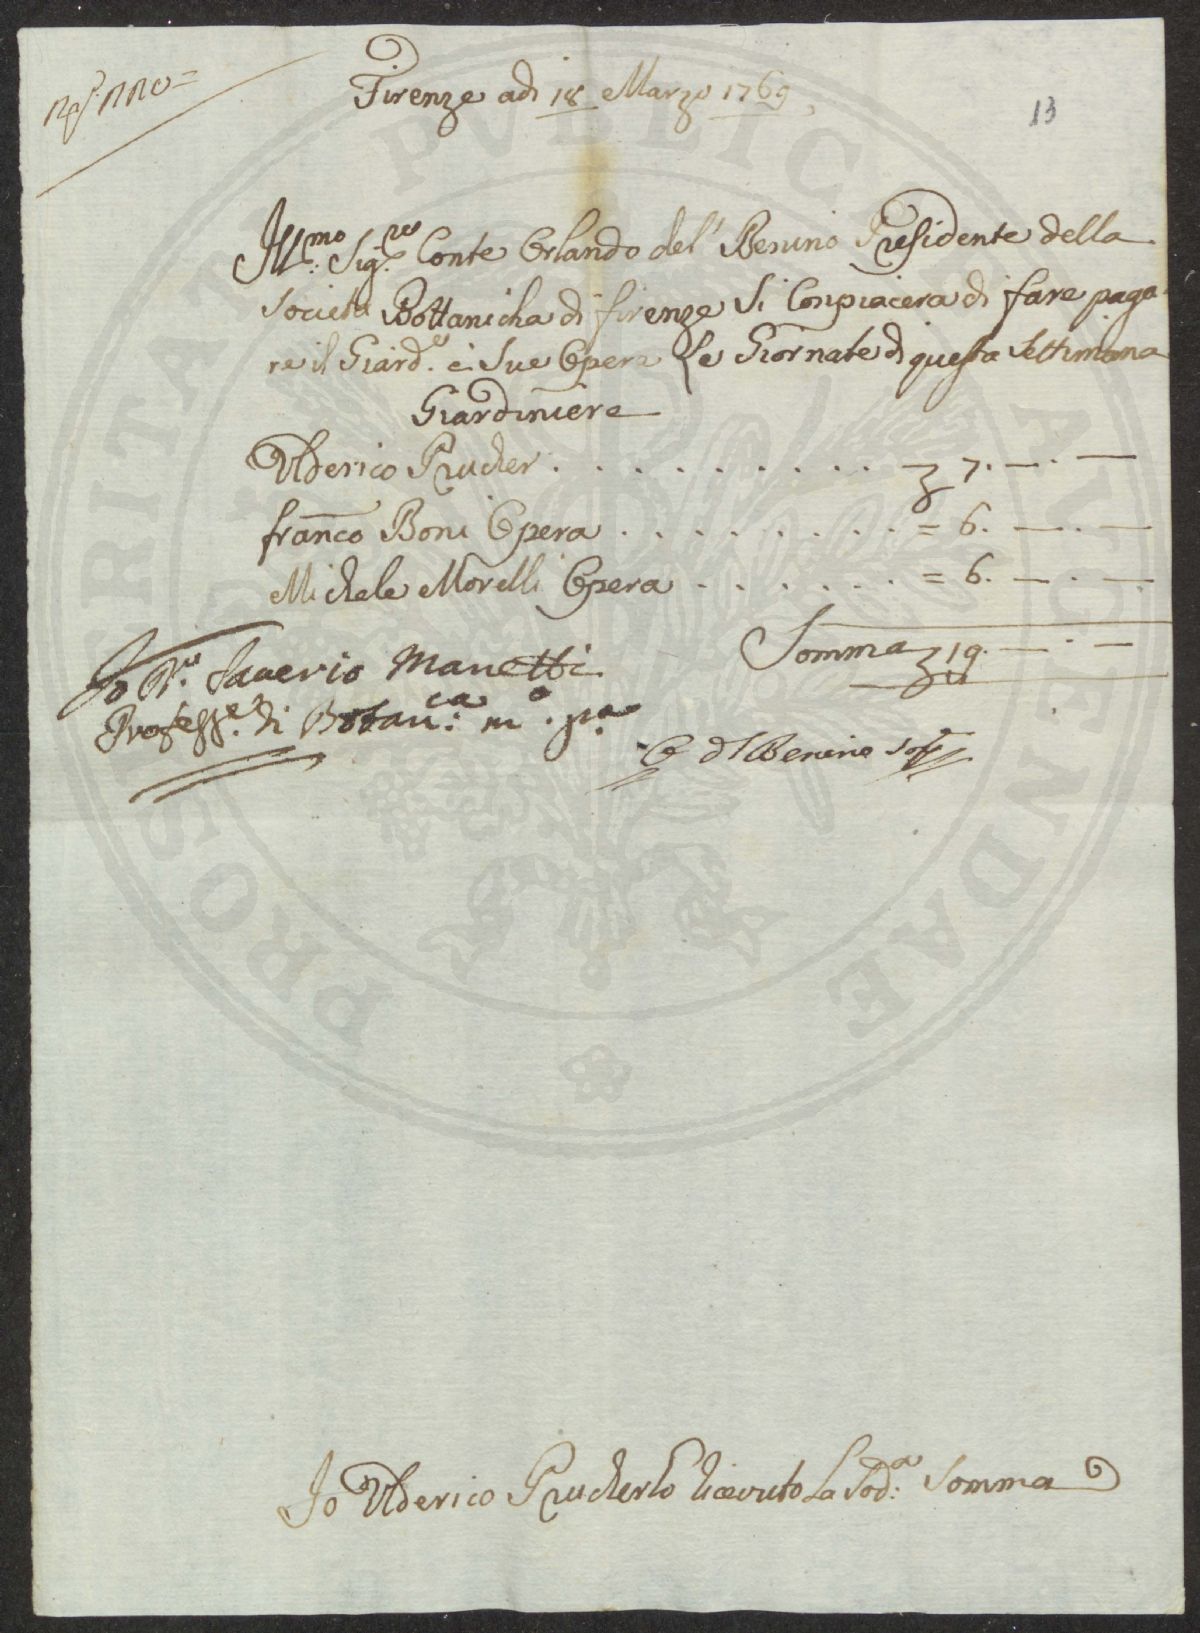 Firenze adi 18 Marzo 1769
13
Ill:mo Sig:re Conte Orlando del' Benino Presidente della
Società Bottanicha di firenze Si Conpiacera di fare paga
re il Giard:e è Sue Opera Le Giornate di questa Settimana
Giardiniere
Ulderico Prucher . . . . . . . . . . 7. — . —
Franco Boni Opera . . . . . . . . = 6. — . —
Michele Morelli Opera . . . . . . = 6. — . —
Somma 19. — . —
Io Saverio Manetti
Profess:e di Botan:ca m:o p:a
O d'l Benino
Io Ulderico Prucher ò riceuuto La Sod:a Somma
PROSPERITATI PVBLICAE AVGENDAE